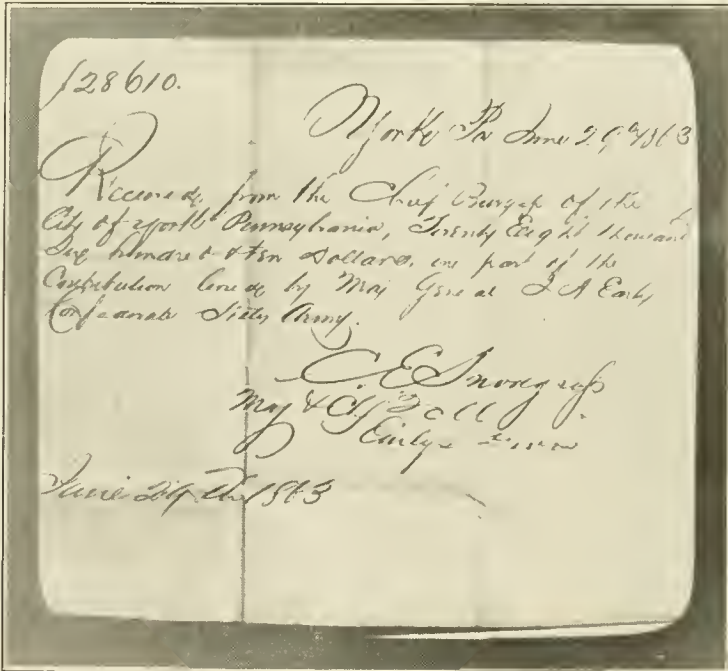 $28610.
York Pa June 29th 1863
Received from the Chief Burgess of the
City of York Pennsylvania, Twenty Eight thousand
Six hundred & ten Dollars, in part of the
Contribution levied by Maj General J A Early
Confederate States Army.
C. E Snodgrass
Maj & Q M
Earlys
June 29th 1863